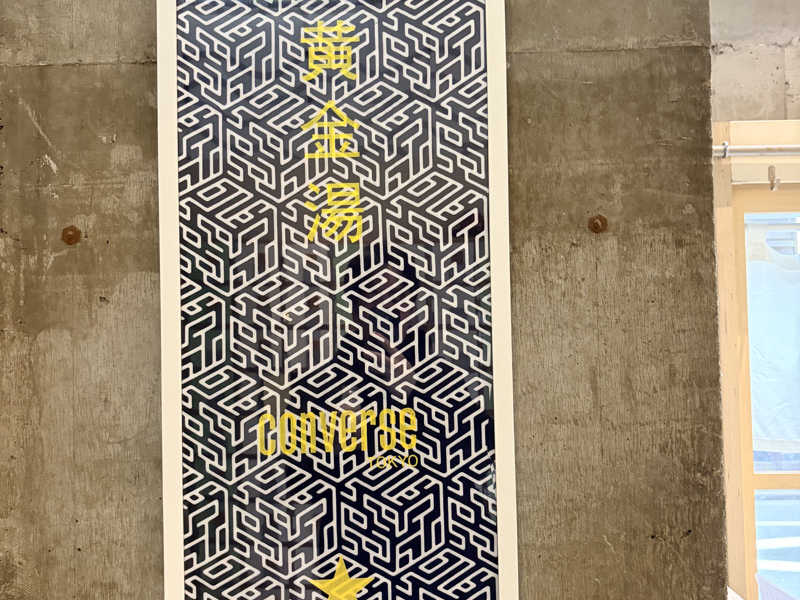 黄金湯
converse
TOKYO